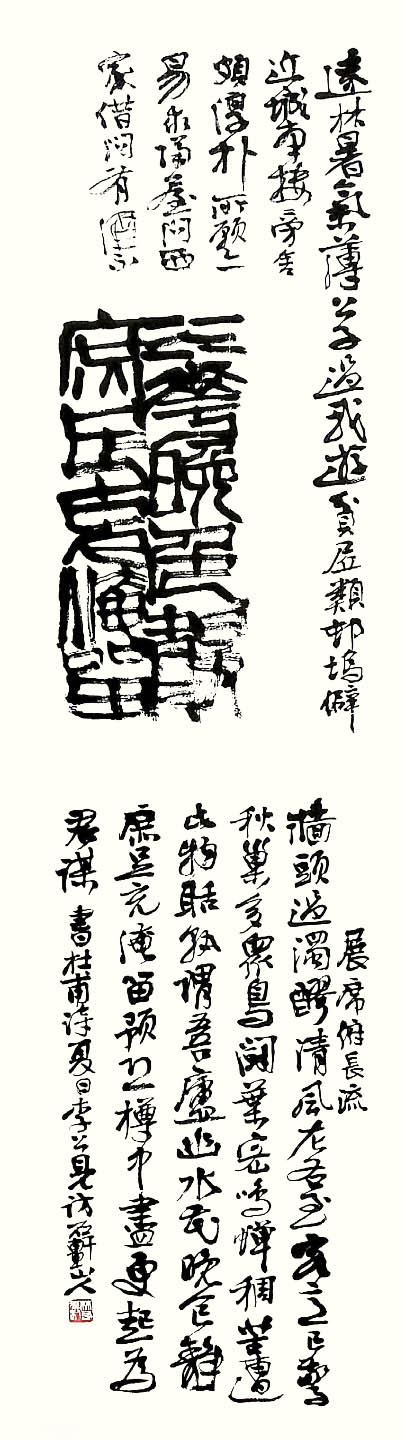 遠林暑氣薄公子過我遊貧居類邨塢僻
近城南樓旁舍
頗淳朴所願亦
易求隔屋問西
家借問有酒不
水華晚色靜
庶足充淹留
展席俯長流
牆頭過濁醪清風左右至客意已驚
秋巢多眾鳥鬥葉密鳴蟬稠苦遭
此物聒孰謂吾廬幽水花晚色靜
庶足充淹留預恐樽中盡更起為
君謀 書杜甫詩夏日李公見訪